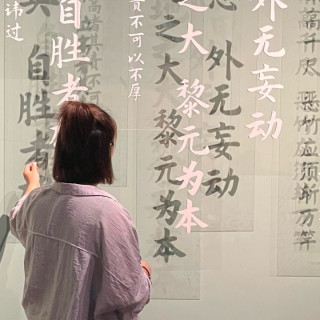 高千尺 恶竹应须斩万竿
外无妄动
外无妄动
之大 黎元为本
之大 黎元为本
不可以不厚
自胜者
自胜者
讳过